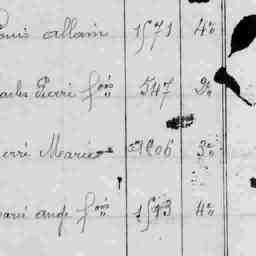 ouis allain 1571 4e
arles Pierre fçois 547 2e
erre Marie 1206 3e
arie ange fçois 1513 4e